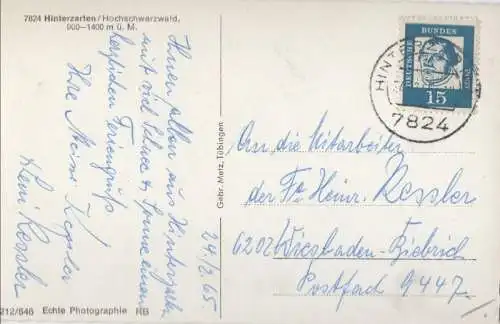 7824 Hinterzarten / Hochschwarzwald,
900-1400 m ü. M.
Ihnen allen aus Hinterzarten
mit viel Schnee & Sonne einen
herzlichen Feriengruß
Ihre Meini Kessler
Heini Kessler
24/2.65
Gebr. Metz, Tübingen
212/646 Echte Photographie RB
DEUTSCHE BUNDESPOST
15
7824
An die Mitarbeiter
der Fa Heinr. Kessler
6202 Wiesbaden-Biebrich
Postfach 9447